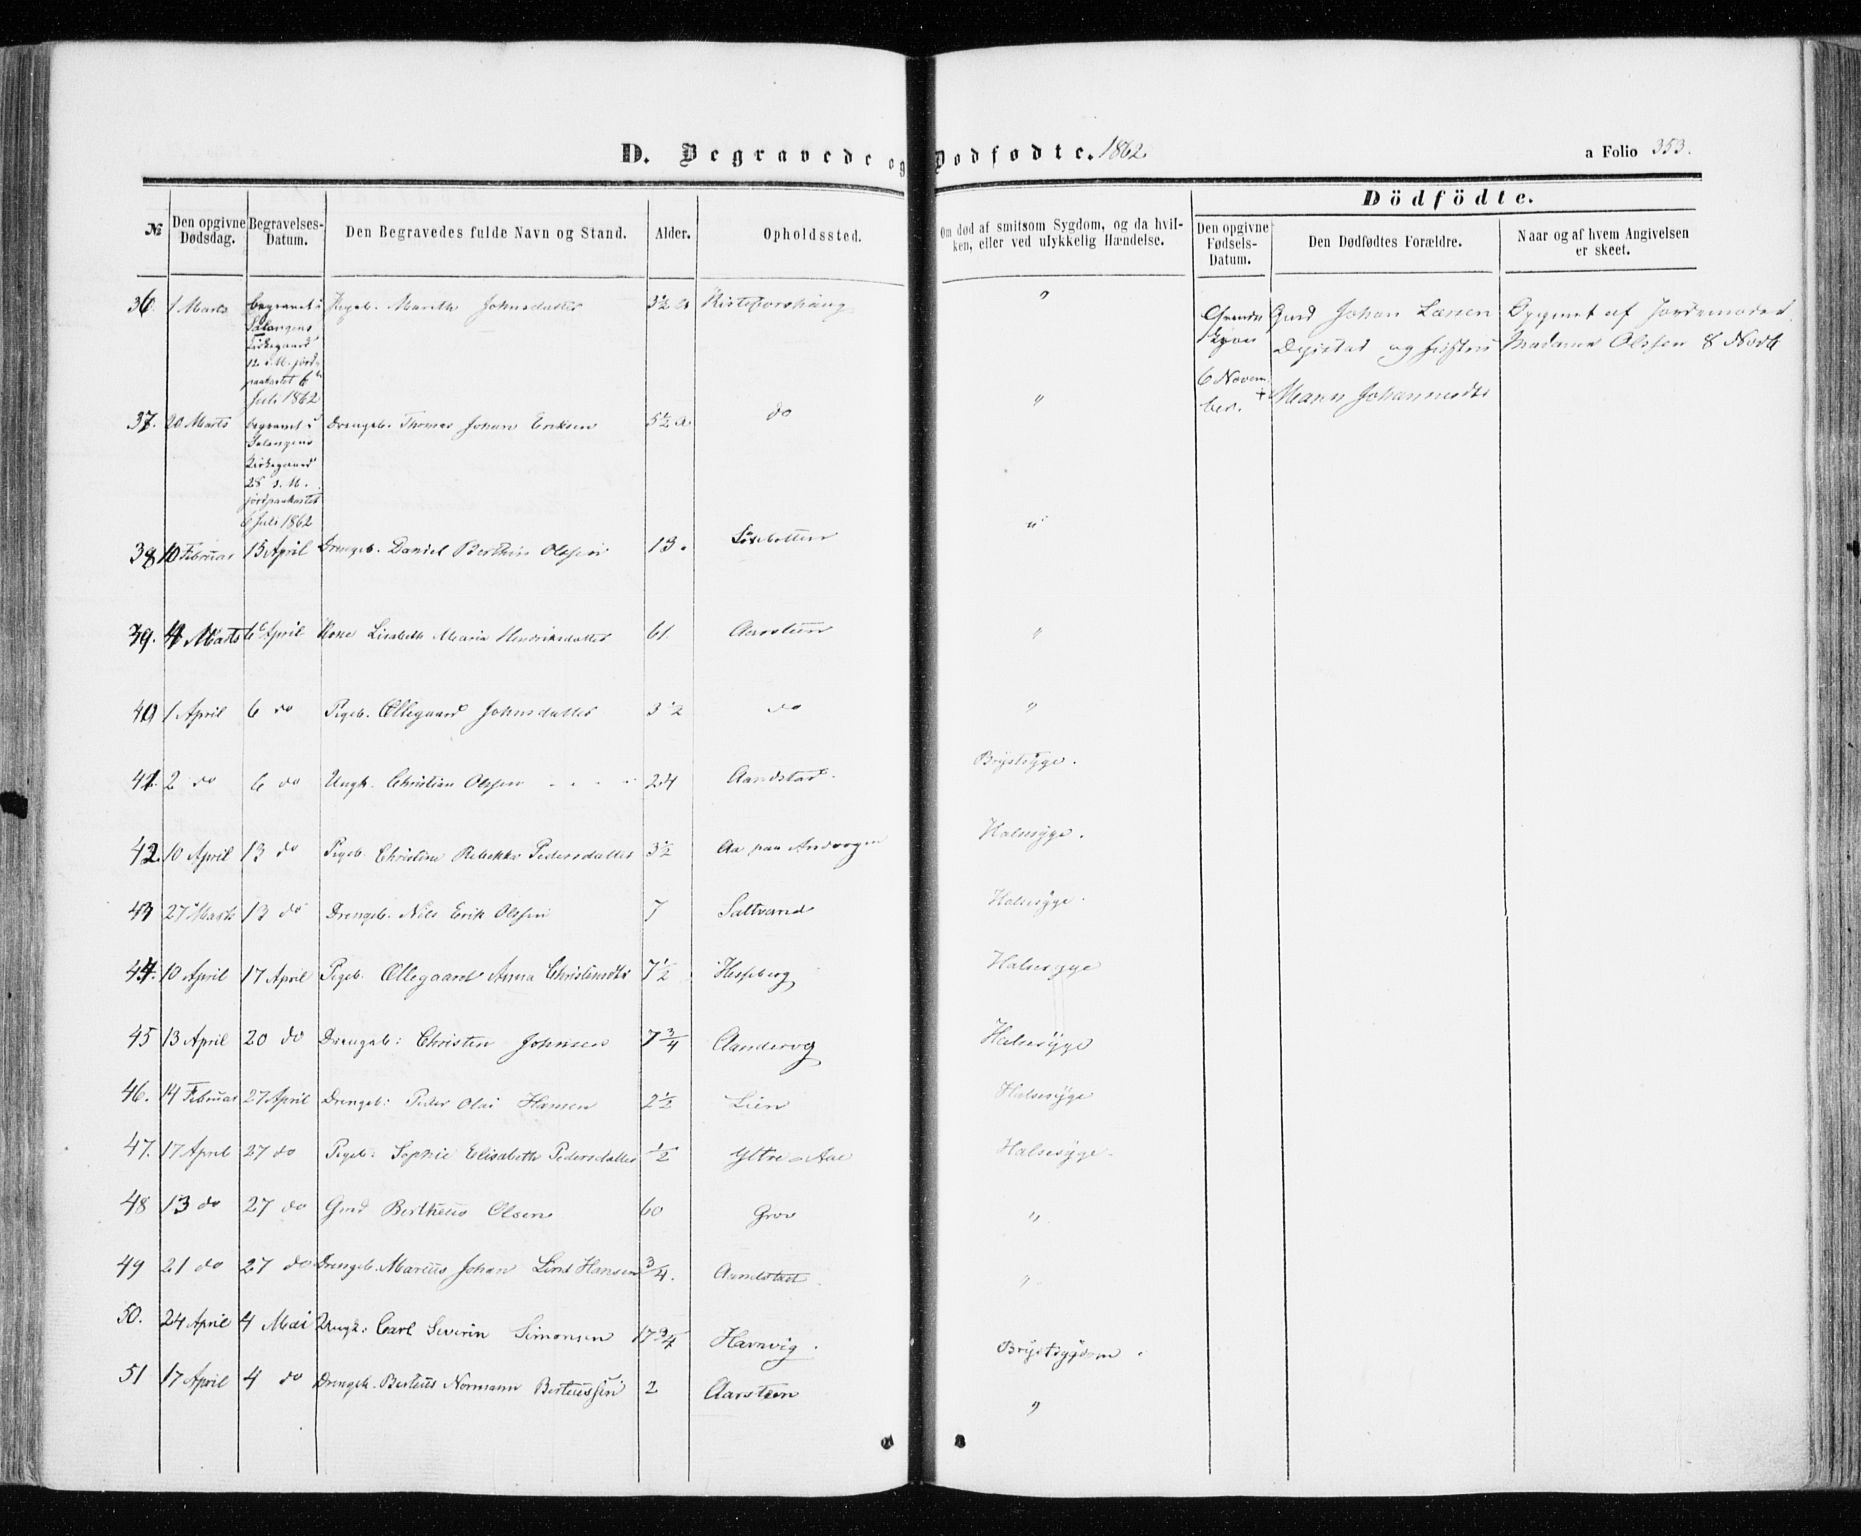 D. Begravede og Dødfødte. 1862.
a Folio 353.
Dödfödte.
№ Den opgivne Dødsdag. Begravelses-Datum. Den Begravedes fulde Navn og Stand. Alder. Opholdssted. Om død af smitsom Sygdom, og da hvilken, eller ved ulykkelig Hændelse. Den opgivne Fødsels-Datum. Den Dødfødtes Forældre. Naar og af hvem Angivelsen er skeet.
36. 1 Marts begravet i Pigeb. Marith Johnsdatter 3½ A "
Salangens
Kirkegaard
12 d. M. jord-
paakastet 6te
Juli 1862
37. 20 Marts begravet i Drengeb. Thomas Johan Eriksen 5½ A do "
Salangens
Kirkegaard
28 d. M.
jordpaakastet
6 Juli 1862
38 10 Februar 13 April Drengeb. Daniel Berthin Olssen 13. "
39. 4 Marts 6te April Kone Lisabeth Maria Hendriksdatter 61 Aarsteen "
40 1 April 6 do Pigeb. Ellegaard Johnsdatter 3½ do "
41. 2 do 6 do Ungk. Christian Olssen 24 Aandstad. Brystsyge.
42. 10 April 13 do Pigeb. Christine Rebekka Pedersdatter 3½ Aa paa Andorgen Halssyge.
43 27 Marts 13 do Drengeb. Nils Erik Olssen 7 Saltvand Halssyge.
44. 10 April 17 April Pigeb. Ellegaard Anna Christensdtr 7½ Hesseberg Halssyge
45 13 April 20 do Drengeb: Christen Johnsen 7¾ Aandervg Halssyge
46. 14 Februar 27 April Drengeb: Peder Olai Hansen 2½ Lien Halssyge
47. 17 April 27 do Pigeb: Sophie Elisabeth Pedersdatter ½ Yttre-Aae Halssyge.
48 13 do 27 do Gmd Bertheus Olsen 60 Grov "
49 21 do 27 do Drengeb. Marius Johan Lind Hansen ¾. Aandstad. "
50. 24 April 4 Mai Ungk: Carl Severin Simonsen 17¾ Havnvig. Brystsygdom.
51 17 April 4 do Drengeb. Berteus Normann Berteussen 2 Aarsteen "
Gmd Johan Larsen
og Hustru
Maren Johannesdtr
6 Novem-
ber.
Opgivet af Jordemoder
Madame Olssen 8 Novb